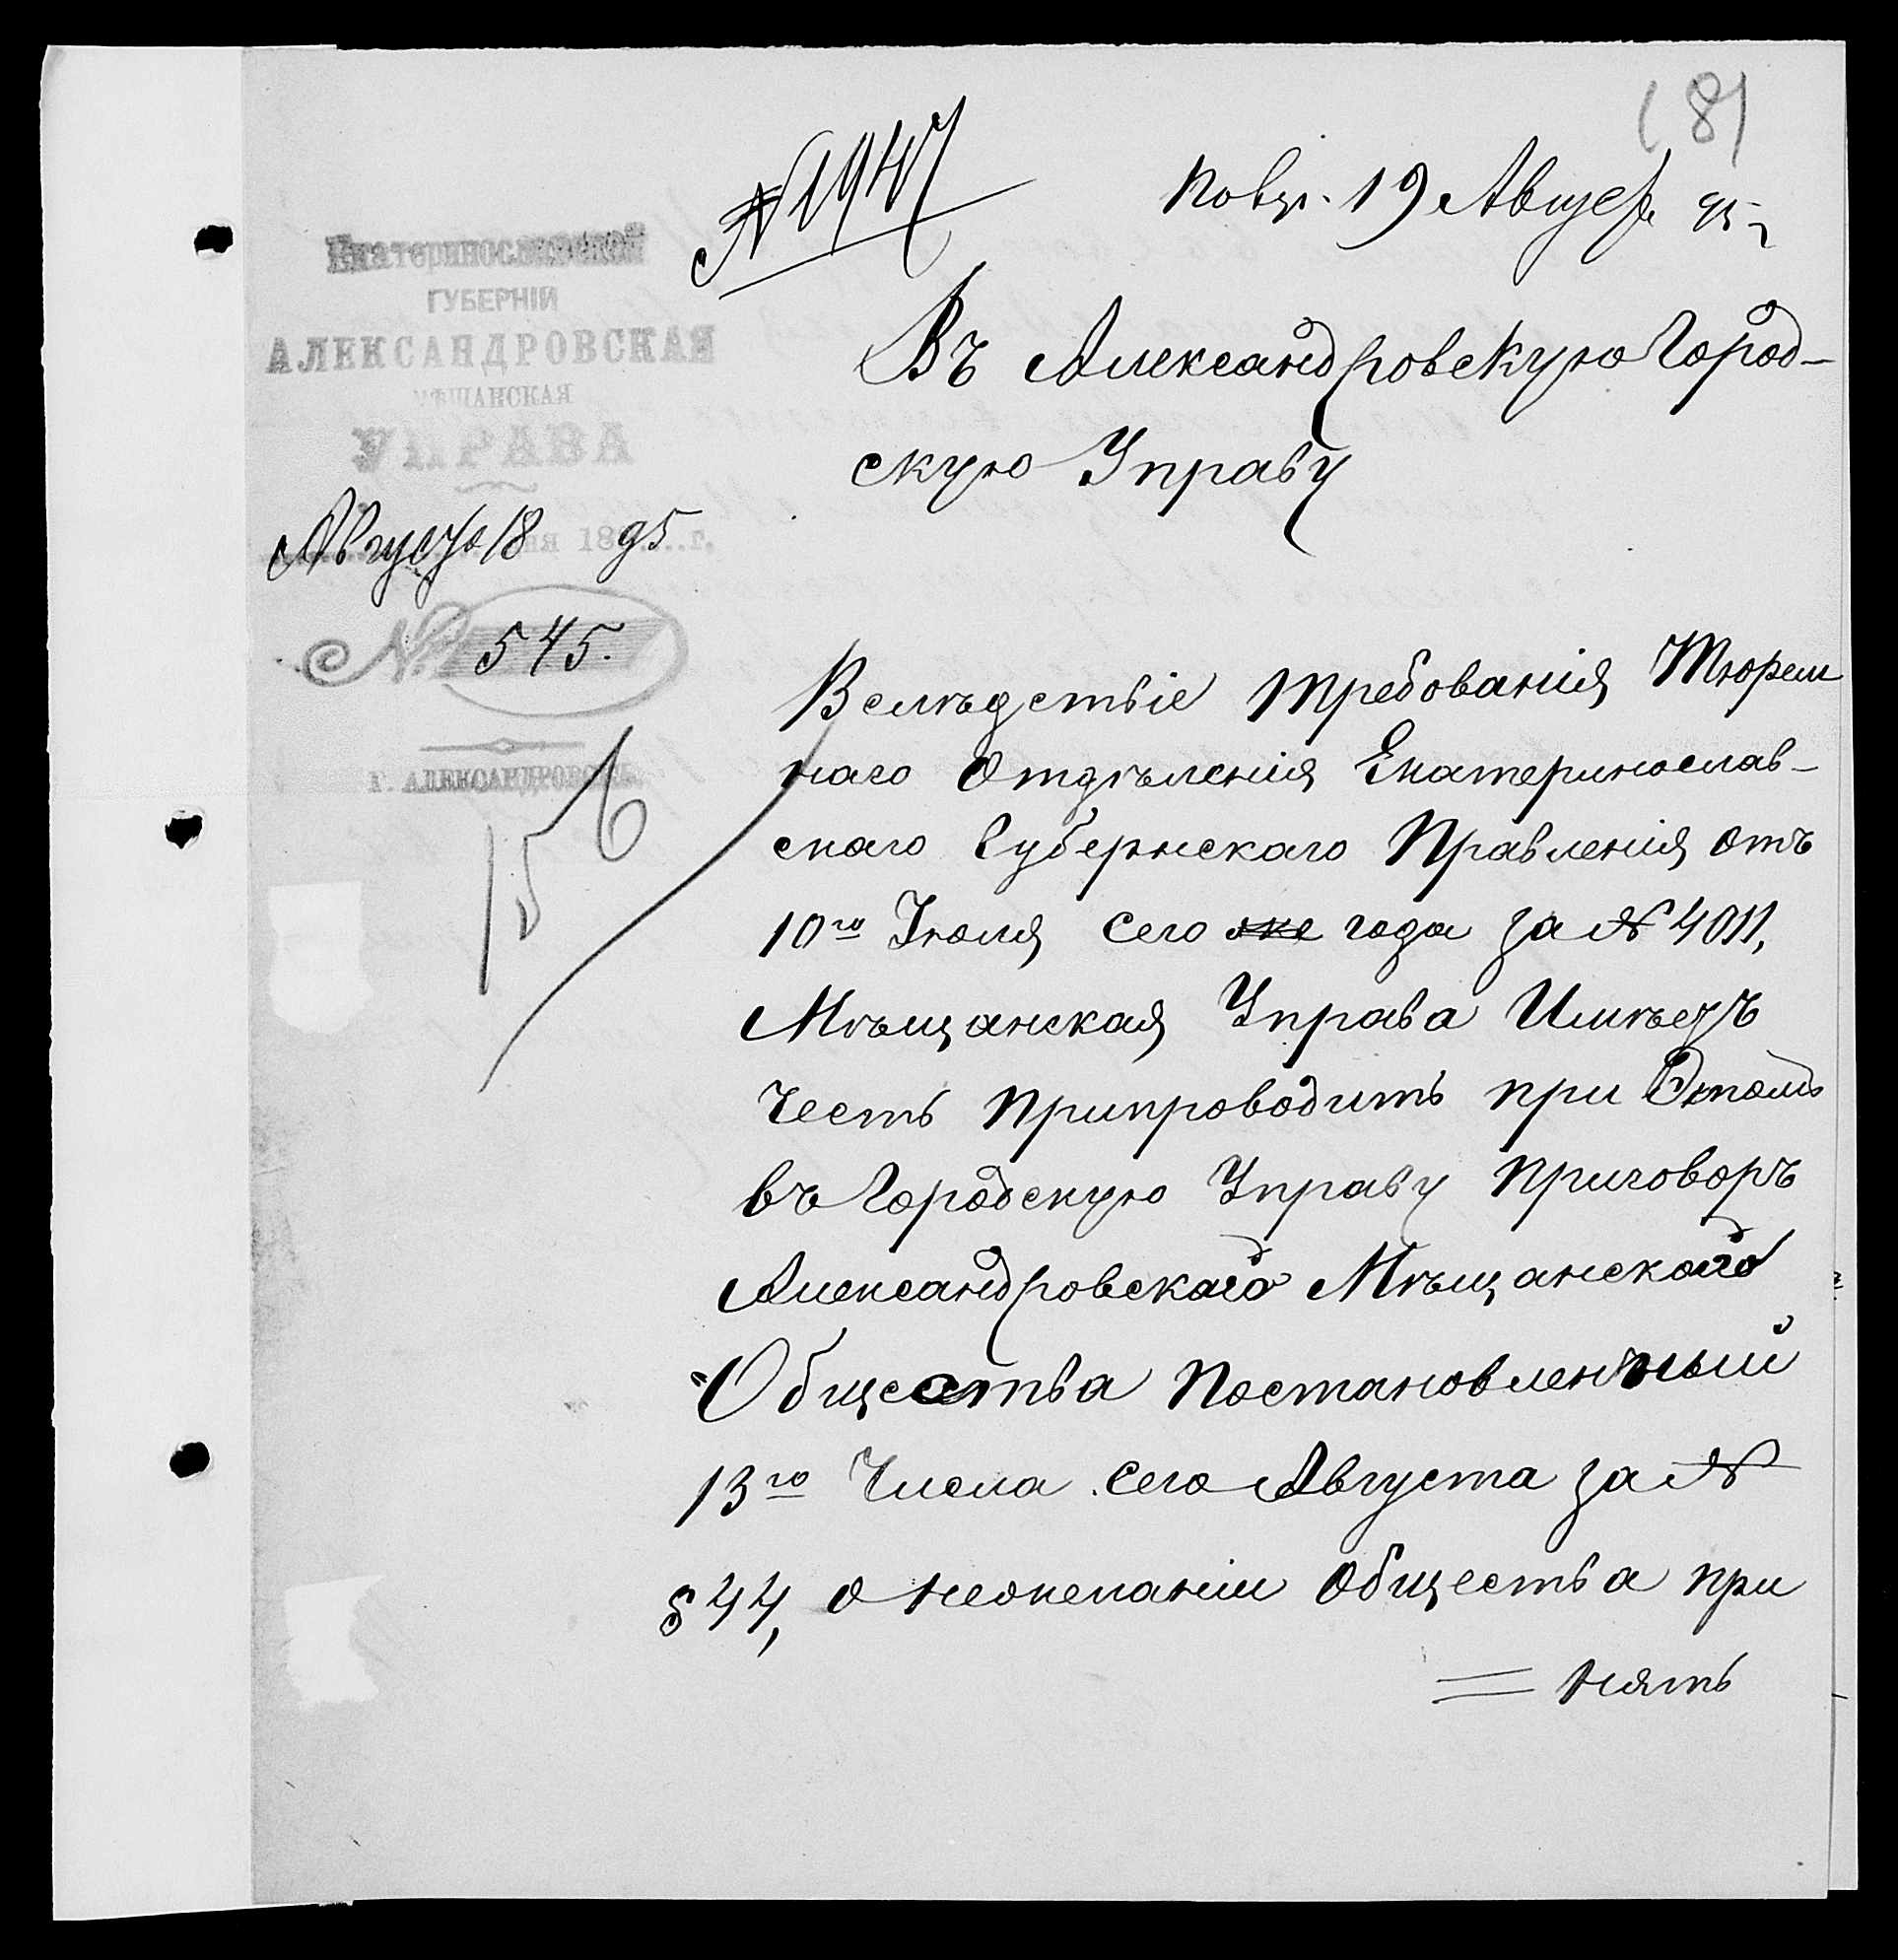 (8)
№ 1947
Получ. 19 Август 95 г
Екатеринославской
ГУБЕРНІИ
АЛЕКСАНДРОВСКАЯ
МѢЩАНСКАЯ
УПРАВА
Августа 18 дня 1895 г.
№ 545.
Г. АЛЕКСАНДРОВСКЪ.
Въ Александровскую Город-
скую Управу
Вслѣдствіе требованія Тюрем
наго Отдѣленія Екатеринослав-
скаго Губернскаго Правленія отъ
10го Іюля сего же года за № 4011,
Мѣщанская Управа Имѣетъ
Честь Припроводить при Этомъ
въ Городскую Управу Приговоръ
Александровскаго Мѣщанскаго
Общества Постановленный
13го Числа сего Августа за №
§ 44, о нежеланіи Общества при
= нять